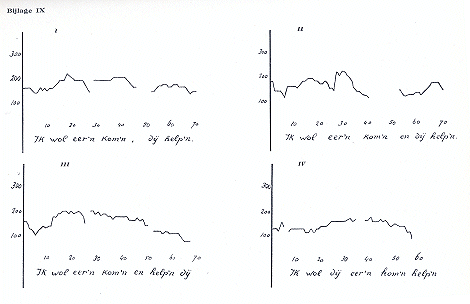 Bijlage IX
I
300
200
100
10 20 30 40 50 60 70
Ik wol eer'n kom'n, dij help'n.
II
300
200
100
10 20 30 40 50 60 70
Ik wol eer'n kom'n en dij help'n.
III
300
200
100
10 20 30 40 50 60 70
Ik wol eer'n kom'n en help'n dij
IV
300
200
100
10 20 30 40 50 60
Ik wol dij eer'n kom'n help'n